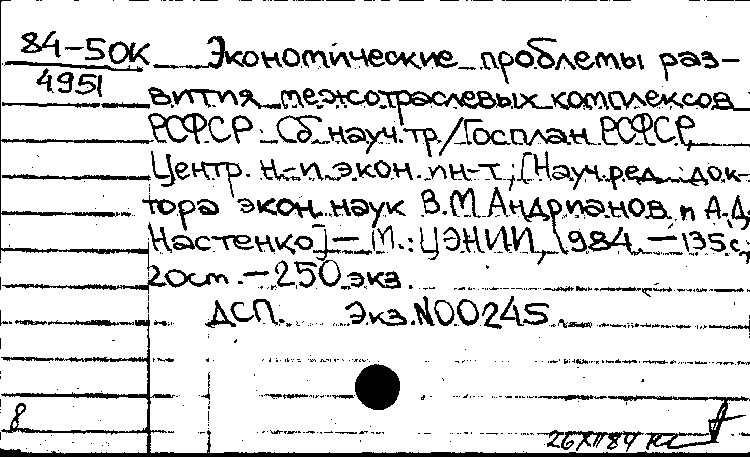 84-5ОК Экономические проблемы раз-
4951
вития межотраслевых комплексов
РСФСР: Сб. науч. тр./Госплан РСФСР,
Центр. н.-и. экон. ин-т; [Науч. ред. док-
тора экон. наук В.М. Андрианов и А.Д.
Настенко] — М.: ЦЭНИИ, 1984. — 135 с.;
20 см. — 250 экз.
ДСП. Экз. N00245.
8
26 XII 84